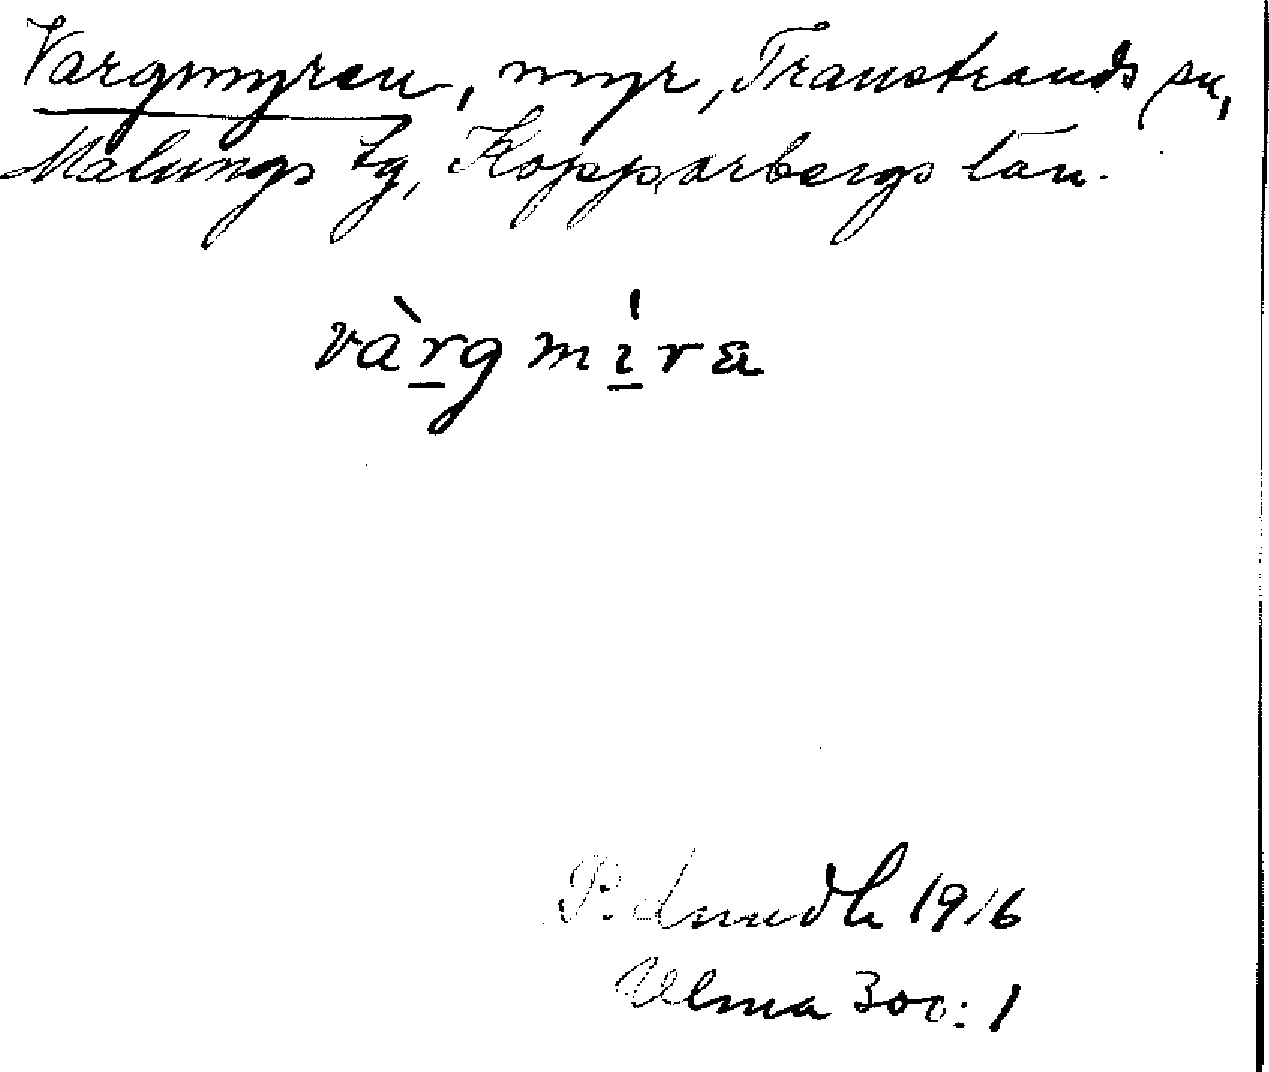 Vargmyren, myr, Transtrands sn,
Malungs tg, Kopparbergs län.
vàrgmíra
1916
Ulma 300:1